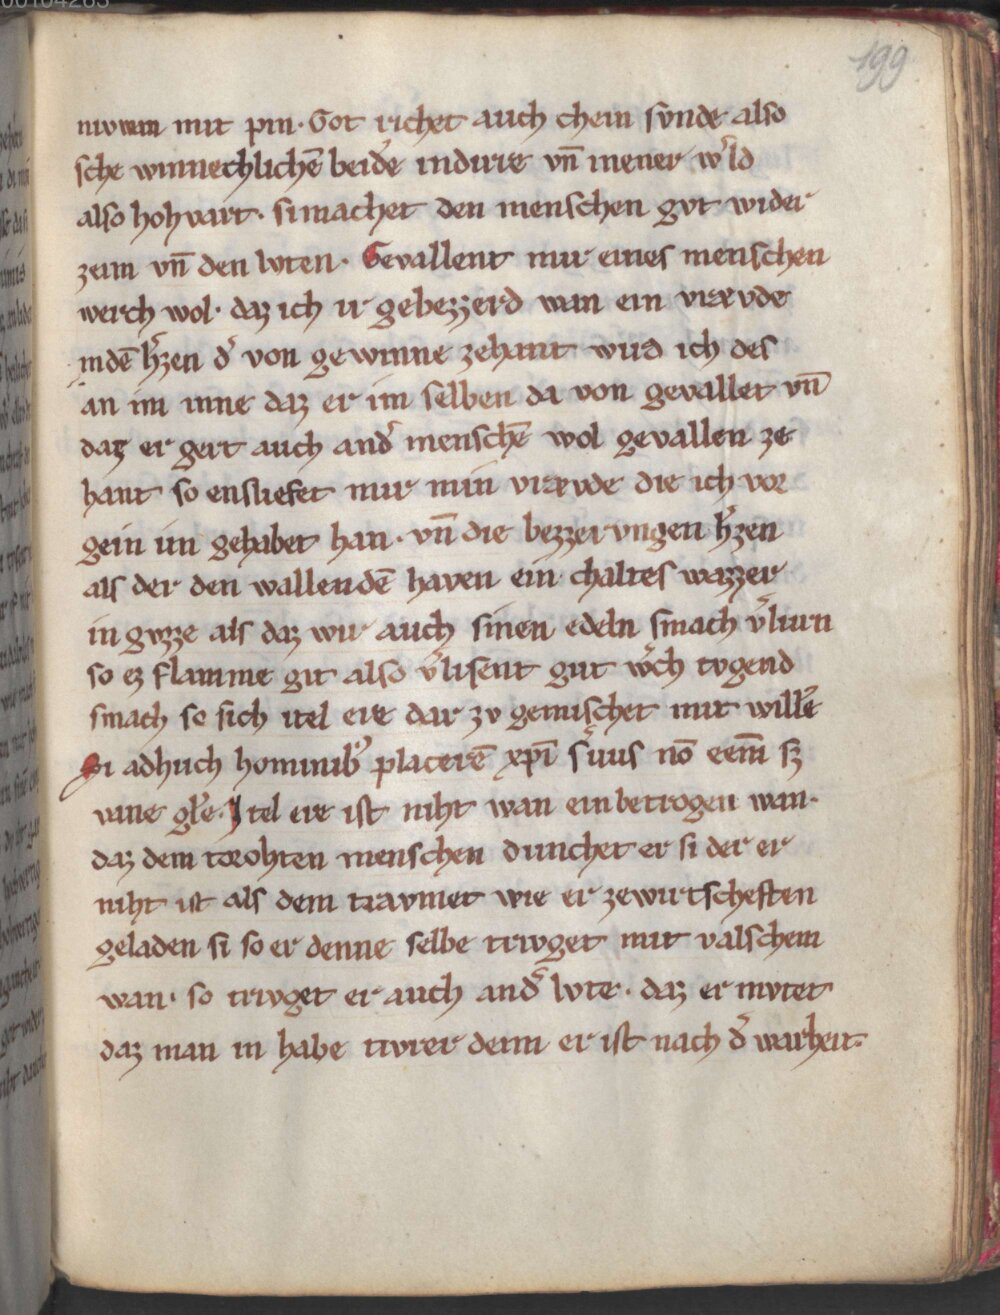 199
niwan mit pin. Got richet auch chein svnde also
sche winnechlichē beid̾e indirre vn̄ inener w̾ld
also hohvart. si machet den menschen gvt wider
zeim vn̄ den lvten. Gevallent mir eines menschen
werch wol. daz ich ir gebezzerd wan ein vrævde
indē h̾zen d̾ von gewinne zehant wird ich des
an im inne daz er im selben da von gevallet vn̄
daz er gert auch and̾ menschē wol gevallen ze
hant so ensliefet mir min vrævde die ich vor
gein im gehabet han. vn̄ die bezzervngen h̾zen
als der den wallendē haven ein chaltes wazzer
in gvzze als daz wir auch sinen edeln smach v̾liurn
so ez flamme git also v̾lisent gut w̾ch tvgend
smach so sich itel ere dar zv gemischet mit willē
Si adhuch hominib᷒ placerē xp̄i s̾uus nō eem̄ sꝫ
uane gl̄e. Itel ere ist niht wan ein betrogen wan.
daz dem torohten menschen dunchet er si der er
niht ist als dem travmet wie er zewirtscheften
geladen si so er denne selbe trivget mit valschem
wan. so trivget er auch and̾ lvte. daz er mvtet
daz man in habe tivrer denn er ist nach d̾ warheit.